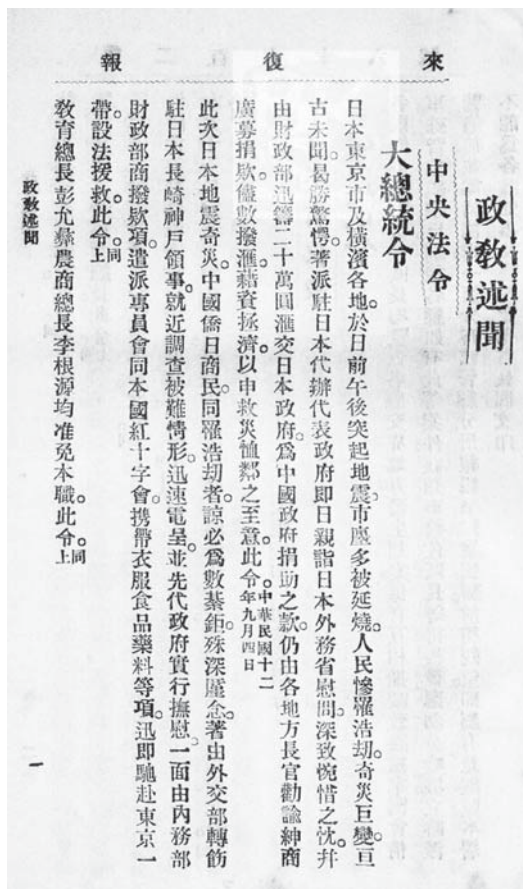 來復報
政教述聞
中央法令
大總統令
日本東京市及橫濱各地。於日前午後突起地震。市廛多被延燒。人民慘罹浩刧。奇災巨變。亘
古未聞。曷勝驚愕。著派駐日本代辦代表政府。即日親詣日本外務省慰問。深致惋惜之忱。幷
由財政部迅籌二十萬圓。滙交日本政府。爲中國政府捐助之款。仍由各地方長官勸諭紳商
廣募捐欵。儘數撥滙。藉資拯濟。以申救災恤鄰之至意。此令。中華民國十二年九月四日
此次日本地震奇災。中國僑日商民。同罹浩刧者。諒必爲數綦鉅。殊深廑念。著由外交部轉飭
駐日本長崎神戶領事。就近調查被難情形。迅速電呈。並先代政府實行撫慰。一面由內務部
財政部商撥欵項。遣派專員會同本國紅十字會。携帶衣服食品藥料等項。迅即馳赴東京一
帶。設法援救。此令。同上
敎育總長彭允彝農商總長李根源均准免本職。此令。同上
政敎述聞
一